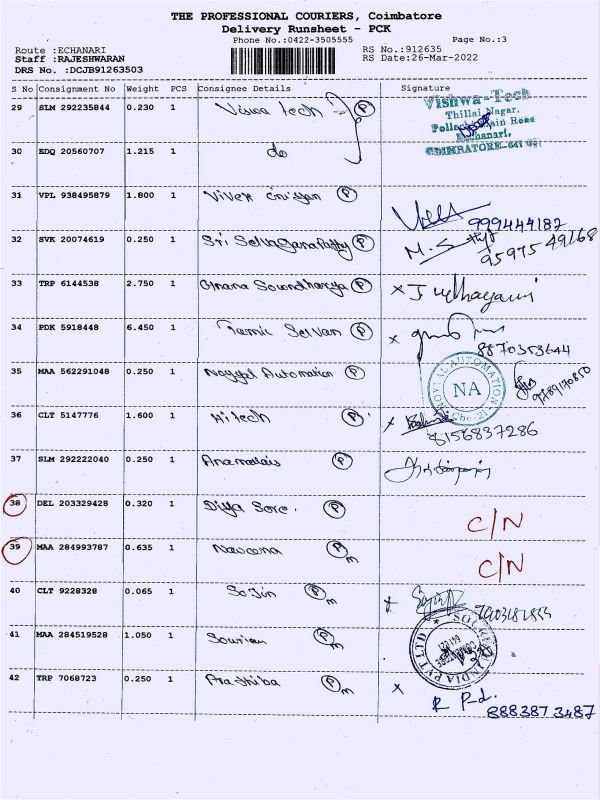 THE PROFESSIONAL COURIERS, Coimbatore
Delivery Runsheet - PCK
Phone No.:0422-3505555 Page No.:3
Route :ECHANARI RS No.:912635
Staff :RAJESHWARAN RS Date:26-Mar-2022
DRS No. :DCJB91263503
S No Consignment No Weight PCS Consignee Details Signature
29 SLM 292235844 0.230 1 Viswa tech P
VISHWA-Tech
Thillai Nagar,
Pollachi Main Road
Echanari,
COIMBATORE-641
30 EDQ 20560707 1.215 1 do
31 VPL 938495879 1.800 1 Vivek P
999444182
32 SVK 20074619 0.250 1 Sri Selvaganapathy P M.S
95975 49168
33 TRP 6144538 2.750 1 Gnana Soundharya P x Judhayani
34 PDK 5918448 6.450 1 Tamil Selvan P x
8870353644
35 MAA 562291048 0.250 1 Noyyal Automation P NOYYAL AUTOMATION NA
9789170850
36 CLT 5147776 1.600 1 Hitech P x
8156837286
37 SLM 292222040 0.250 1 Anamalais P
38 DEL 203329428 0.320 1 Diya Sore. P C/N
39 MAA 284993787 0.635 1 Naveena P m C/N
40 CLT 9228328 0.065 1 Sojin P m x
41 MAA 284519528 1.050 1 Sourian P m INDIA PVT LTD
42 TRP 7068723 0.250 1 Prathiba P m x
R P-d.
888387 3487